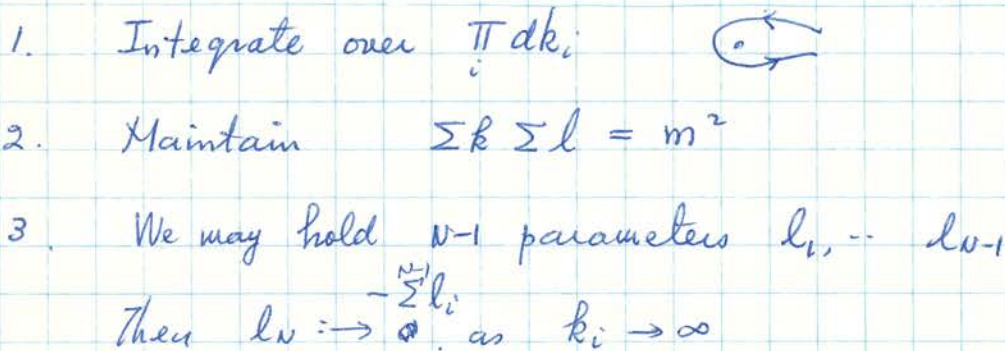 1. Integrate over ∏_i dk_i
2. Maintain Σk Σl = m²
3. We may hold N-1 parameters l_1, -- l_{N-1}
Then l_N :→ -Σ^{N-1} l_i as k_i → ∞